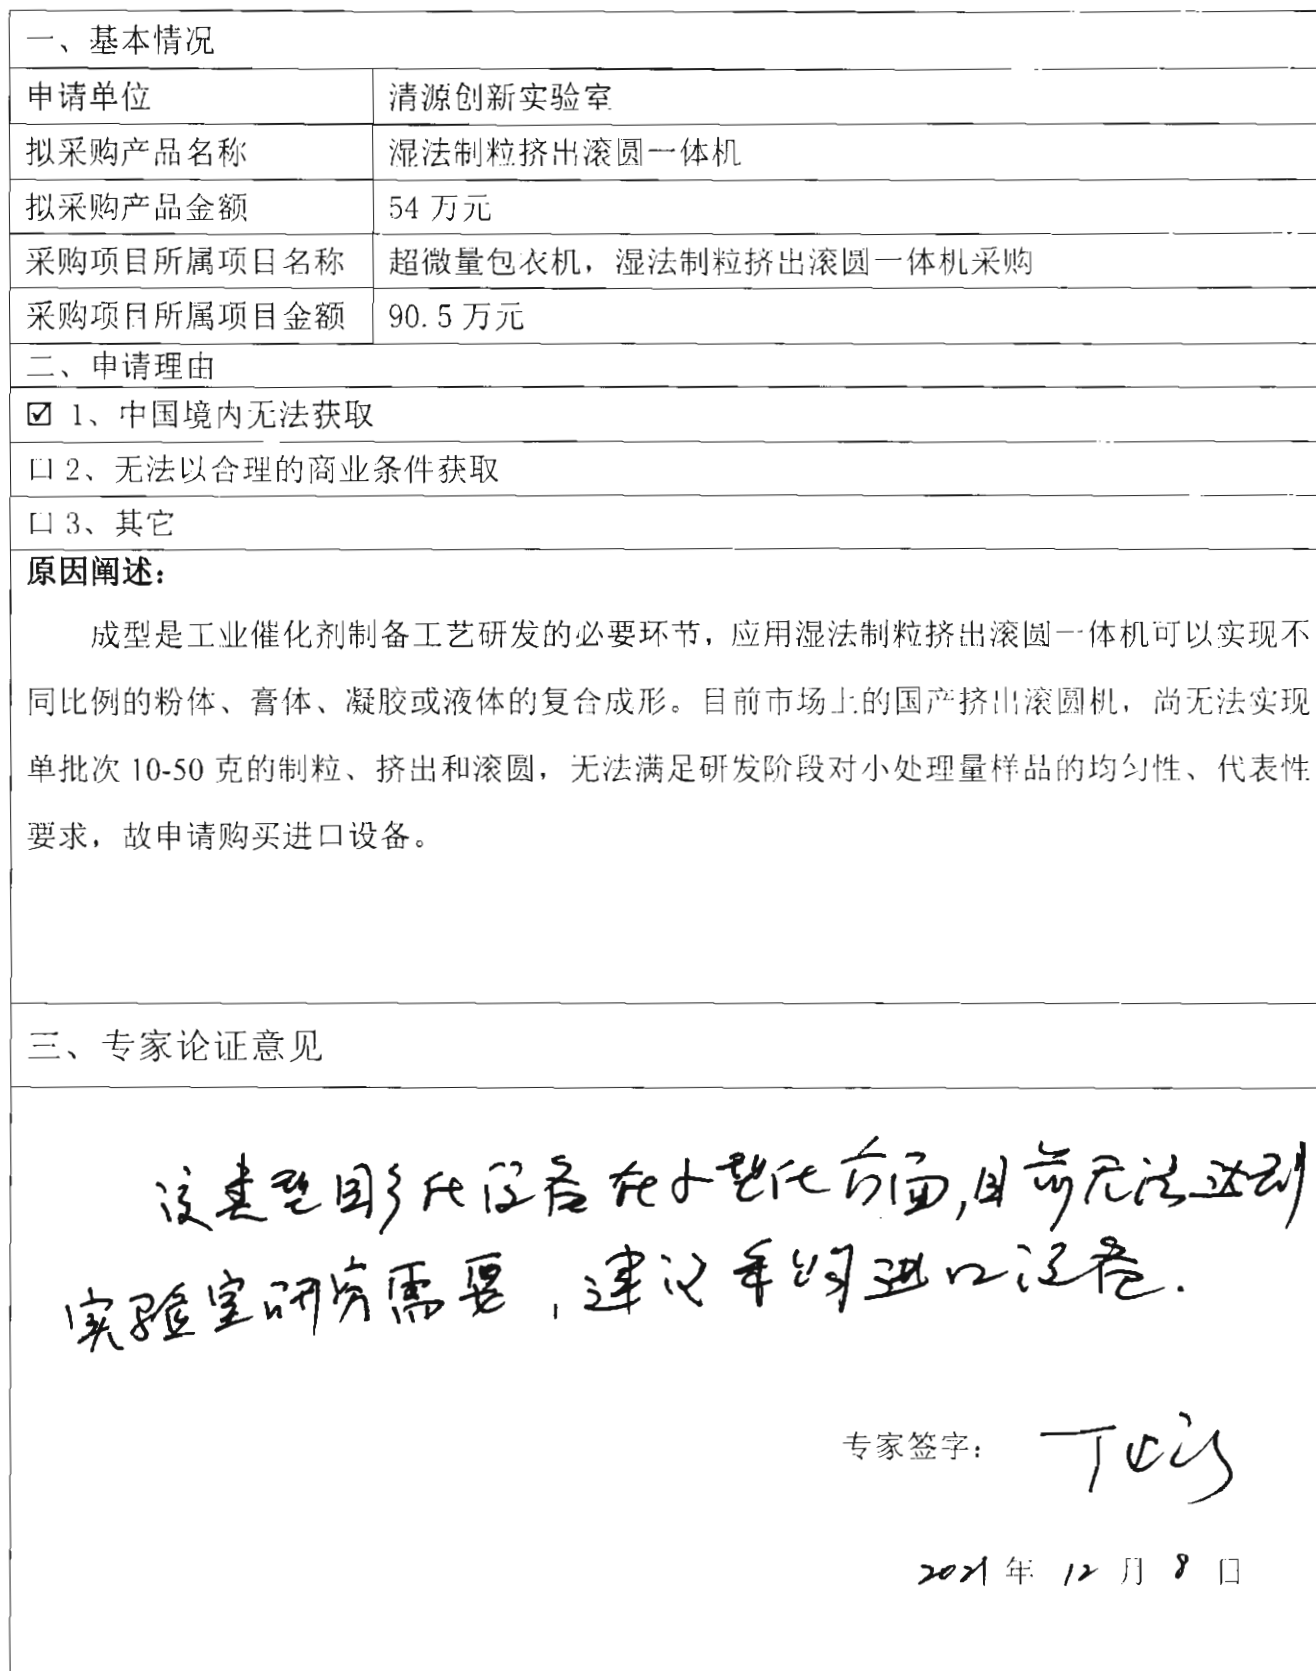 一、基本情况
申请单位 清源创新实验室
拟采购产品名称 湿法制粒挤出滚圆一体机
拟采购产品金额 54 万元
采购项目所属项目名称 超微量包衣机，湿法制粒挤出滚圆一体机采购
采购项目所属项目金额 90.5 万元
二、申请理由
☑ 1、中国境内无法获取
口 2、无法以合理的商业条件获取
口 3、其它
原因阐述：
成型是工业催化剂制备工艺研发的必要环节，应用湿法制粒挤出滚圆一体机可以实现不
同比例的粉体、膏体、凝胶或液体的复合成形。目前市场上的国产挤出滚圆机，尚无法实现
单批次 10-50 克的制粒、挤出和滚圆，无法满足研发阶段对小处理量样品的均匀性、代表性
要求，故申请购买进口设备。
三、专家论证意见
该类型国产化设备在小型化方面,目前无法达到
实验室研究需要，建议采购进口设备.
专家签字：
2021 年 12 月 8 日